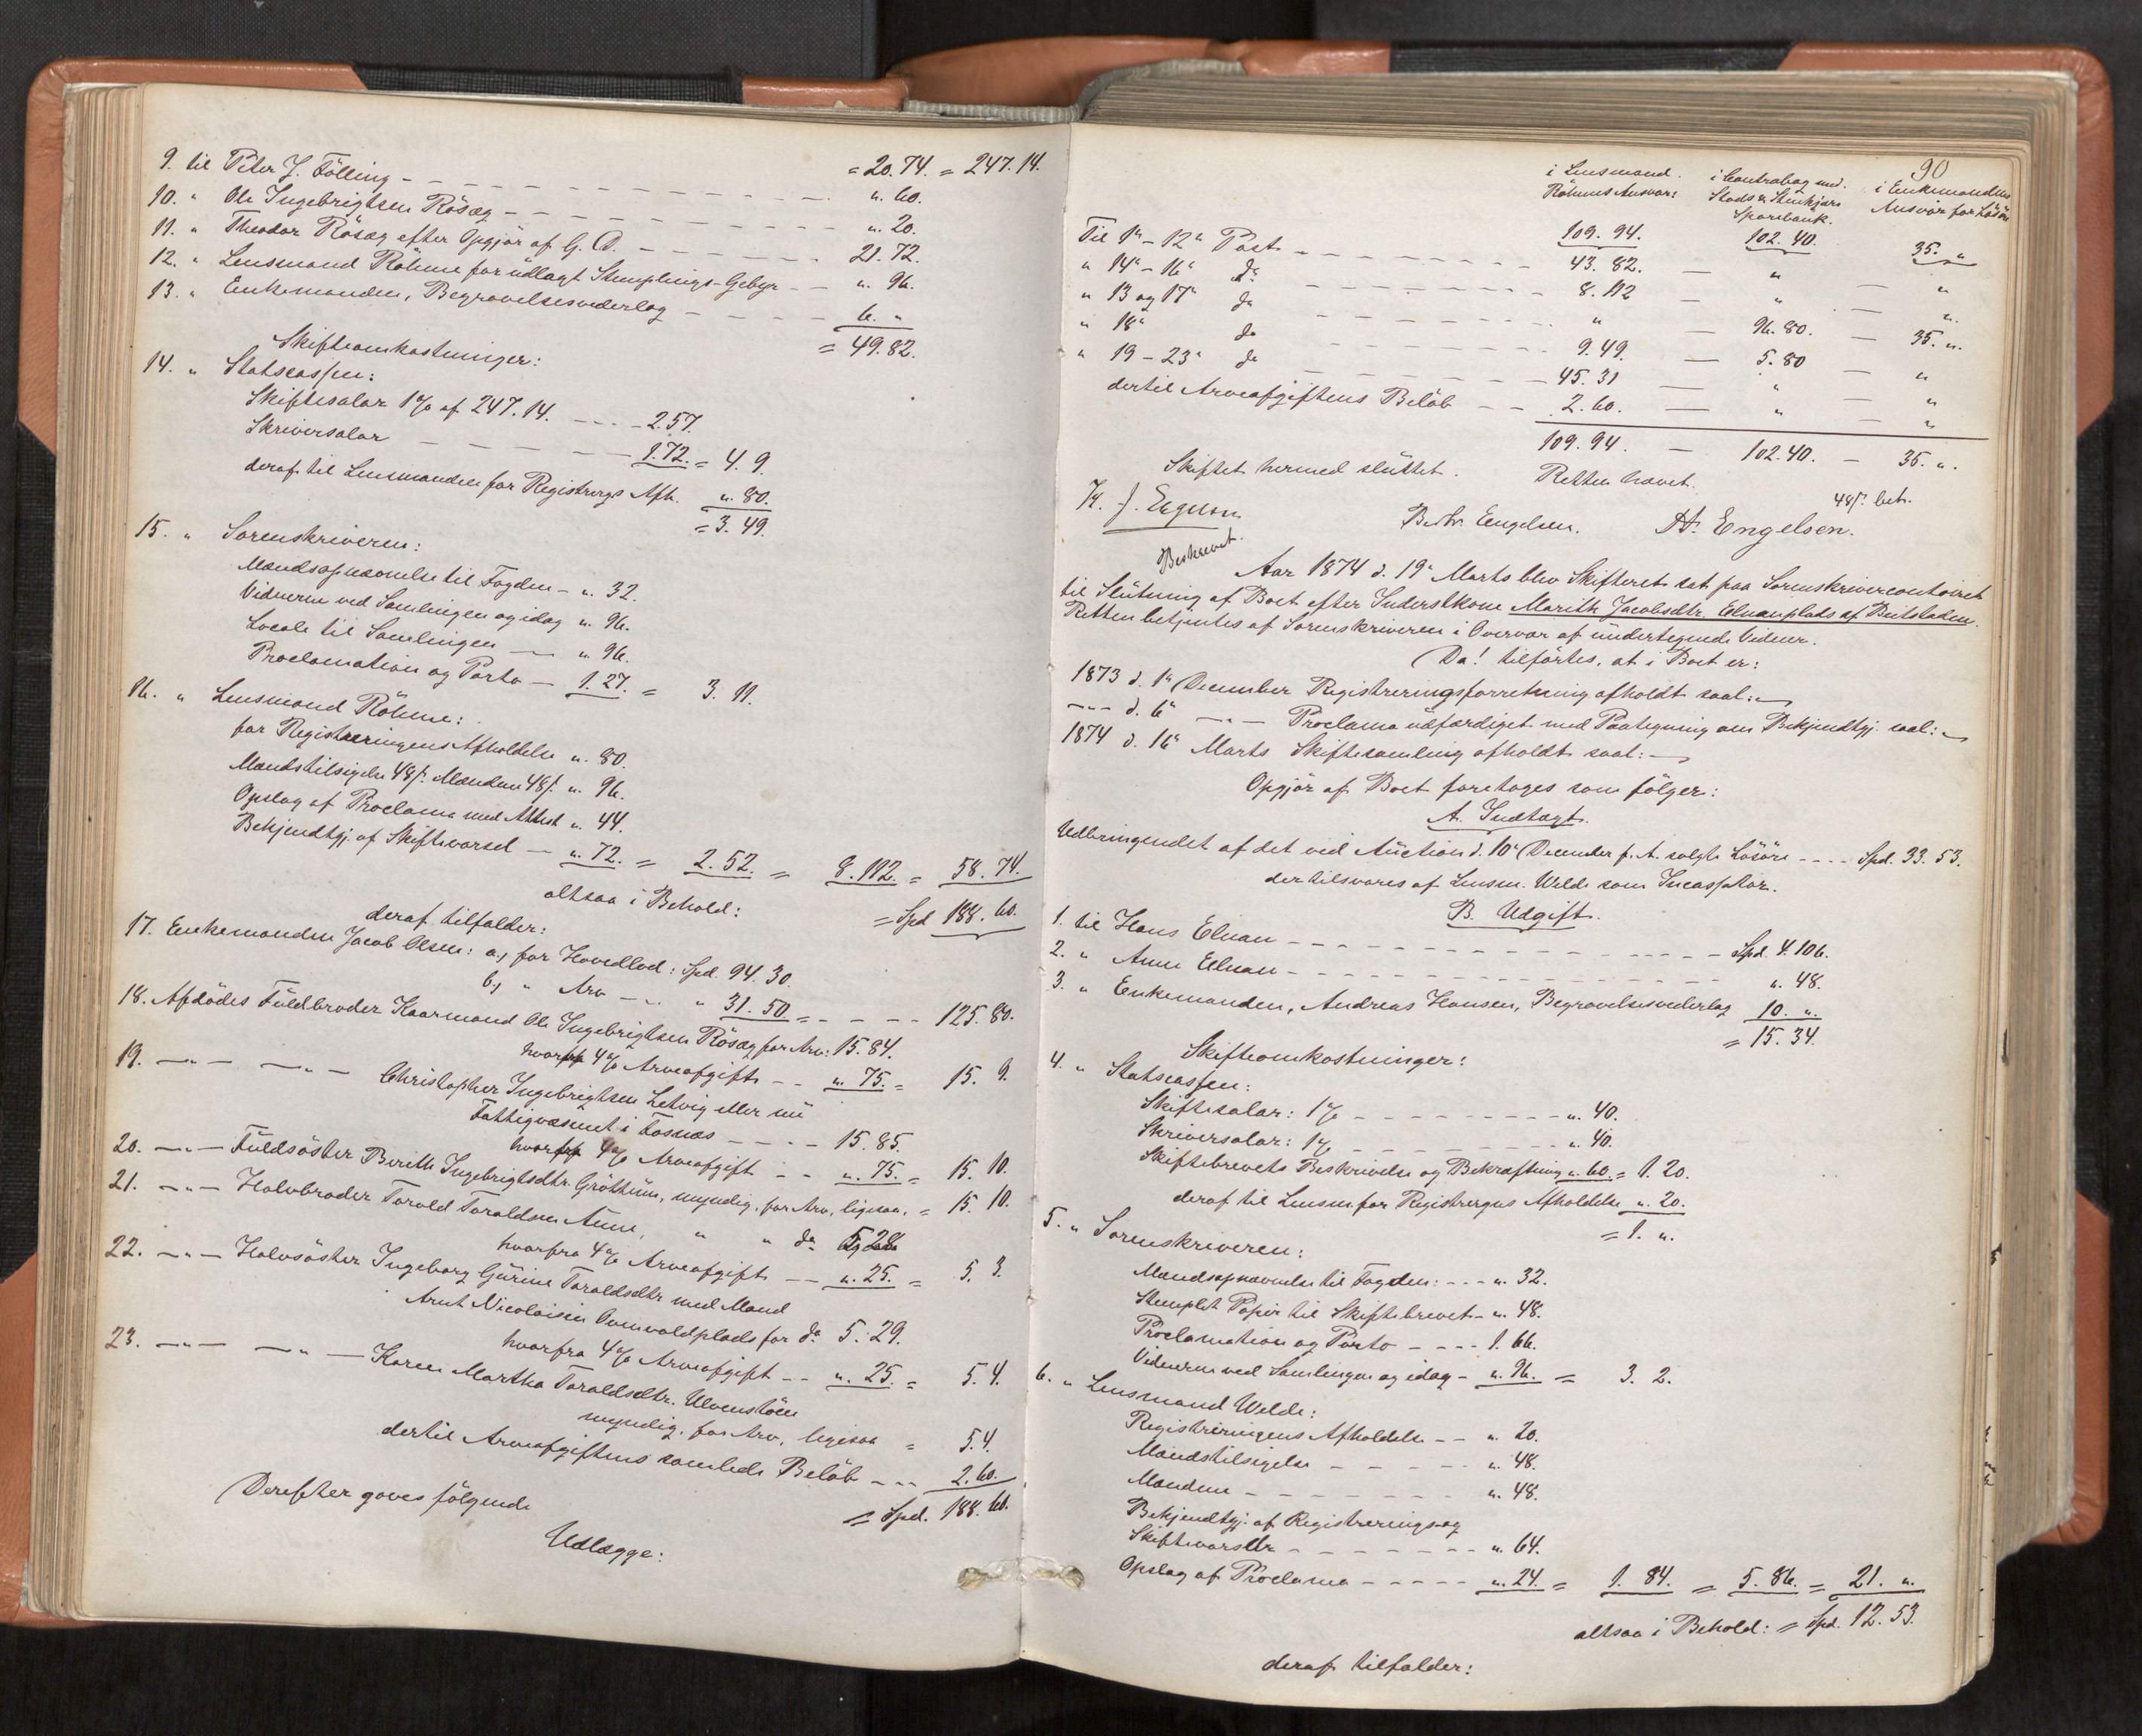 9. til Peter J. Fölling - - - = 20.74. = 247.14.
10. " Ole Ingebrigtsen Rösæg - - - ". 60.
11. " Theodor Rösæg efter Opgjör af G. A. - - - ". 20.
12. " Lensmand Röhme for udlagt Stemplings-Gebyr - - 21.72.
13. " Enkemanden, Begravelsesvederlag - - - ". 96.
6. "
= 49.82.
Skifteomkostninger:
14. " Statscassen:
Skiftesalar 1% af 247.14. - - - 2.57.
Skriversalar - - - 1.72. = 4. 9.
deraf til Lensmanden for Registrergs Afh. ". 80.
= 3. 49.
15. " Sorenskriveren:
Mandsopnævnelse til Fogden - ". 32.
Vidnerne ved Samlingen og idag ". 96.
Locale til Samlingen — ". 96.
Proclamation og Porto — 1.27. = 3. 11.
16. " Lensmand Röhme:
for Registreringens Afholdelse ". 80.
Mandstilsigelse 48/: Mændene 48/: ". 96.
Opslag af Proclama med Attest ". 44.
Bekjendtgj. af Skiftevarsel — ". 72. = 2. 52. = 8.112. = 58.74.
altsaa i Behold: = Spd 188. 60.
deraf tilfalder:
17. Enkemanden Jacob Olsen: a, for Hovedlod: Spd. 94. 30.
b, " Arv — " 31. 50. = - - - 125. 80.
18. Afdödes Fuldbroder Kaarmand Ole Ingebrigtsen Rösæg for Arv: 15. 84.
hvorfra 4% Arveafgift - - ". 75. = 15. 9.
19. —"— —"— Christopher Ingebrigtsen Letvig eller nu
Fattigvæsenet i Fosnæs - - - - 15. 85.
hvorfra 4% Arveafgift - - ". 75. = 15. 10.
20. —"— Fuldsöster Berith Ingebrigtsdtr. Gröttum, myndig, for Arv, ligesaa, = 15. 10.
21. —"— Halvbroder Torold Toroldsen Aune, " " do 5. 28
hvorfra 4% Arveafgift - - ". 25. = 5. 3.
22. —"— Halvsöster Ingeborg Gurine Toraldsdtr med Mand
Arnt Nicolaisen Overvoldplads for do 5. 29.
hvorfra 4% Arveafgift - - ". 25. = 5. 4.
23. —"— —"— Karen Martha Toraldsdtr. Ulvenstöen
myndig, for Arv, ligesaa = 5.4.
dertil Arveafgiftens samlede Belöb - - - 2.60.
= Spd. 188. 60.
Derefter gaves fölgende
Udlægge:
90
i Lensmand. Röhmes Ansvar:
i Contrabog med. Stods & Stenkjærs Sparebank.
i Enkemandens Ansvar for Lösöre
109. 94. 102. 40. 35. "
Til 1e - 12e Post - - - 43. 82. — " — "
" 14e - 16e do - - - 8. 112 — " — "
" 13 og 17e do - - - " — 96. 80. — 35. ".
" 18e do - - - 9. 49. — 5. 80 — "
" 19 - 23e do - - - 45. 31 — " — "
dertil Arveafgiftens Belöb - - 2. 60. — " — "
109. 94. — 102. 40. — 35. ".
Skiftet hermed sluttet. Retten hævet.
48/: bet.
Bernh. Engelsen. H. Engelsen.
Beskrevet.
Aar 1874 d. 19e Marts blev Skifteret sat paa Sorenskrivercontoiret
til Slutning af Boet efter Inderstkone Marith Jacobsdtr. Elnanplads af Beitstaden.
Retten betjentes af Sorenskriveren i Overvær af undertegnede Vidner.
Da! tilförtes, at i Boet er:
1873 d. 1e December Registreringsforretning afholdt saal:
--- d. 6e —"— Proclama udfærdiget med Paategning om Bekjendtgj. saal:
1874 d. 16e Marts Skiftesamling afholdt saal:
Opgjör af Boet foretages som fölger:
A. Indtægt.
Udbringendet af det ved Auction d. 10e December f. A. solgte Lösöre - - - - Spd. 33. 53.
der tilsvares af Lensm. Welde som Incassator.
B. Udgift.
1. til Hans Elnan - - - Spd. 4.106.
2. " Anne Elnan - - - ". 48.
3. " Enkemanden, Andreas Hansen, Begravelsesvederlag 10. ".
= 15. 34.
Skifteomkostninger:
4. " Statscassen:
Skiftesalar: 1% - - - ". 40.
Skriversalar: 1% - - - ". 40.
Skiftebrevets Beskrivelse og Bekræftning ". 60. = 1. 20.
deraf til Lensm. for Registrergns Afholdelse ". 20.
= 1. ".
5. " Sorenskriveren:
Mandsopnævnelse til Fogden: - - - ". 32.
Stemplet Papir til Skiftebrevet - ". 48.
Proclamation og Porto - - - - 1. 66.
Vidnerne ved Samlingen og idag - ". 96. = 3. 2.
6. " Lensmand Welde:
Registreringens Afholdelse - - ". 20.
Mandstilsigelse - - - ". 48.
Mændene - - - ". 48.
Bekjendtgj. af Registrerings og
Skiftevarsler - - - ". 64.
Opslag af Proclama - - - - - ". 24. = 1. 84. = 5. 86. = 21. ".
altsaa i Behold: = Spd. 12. 53.
deraf tilfalder: